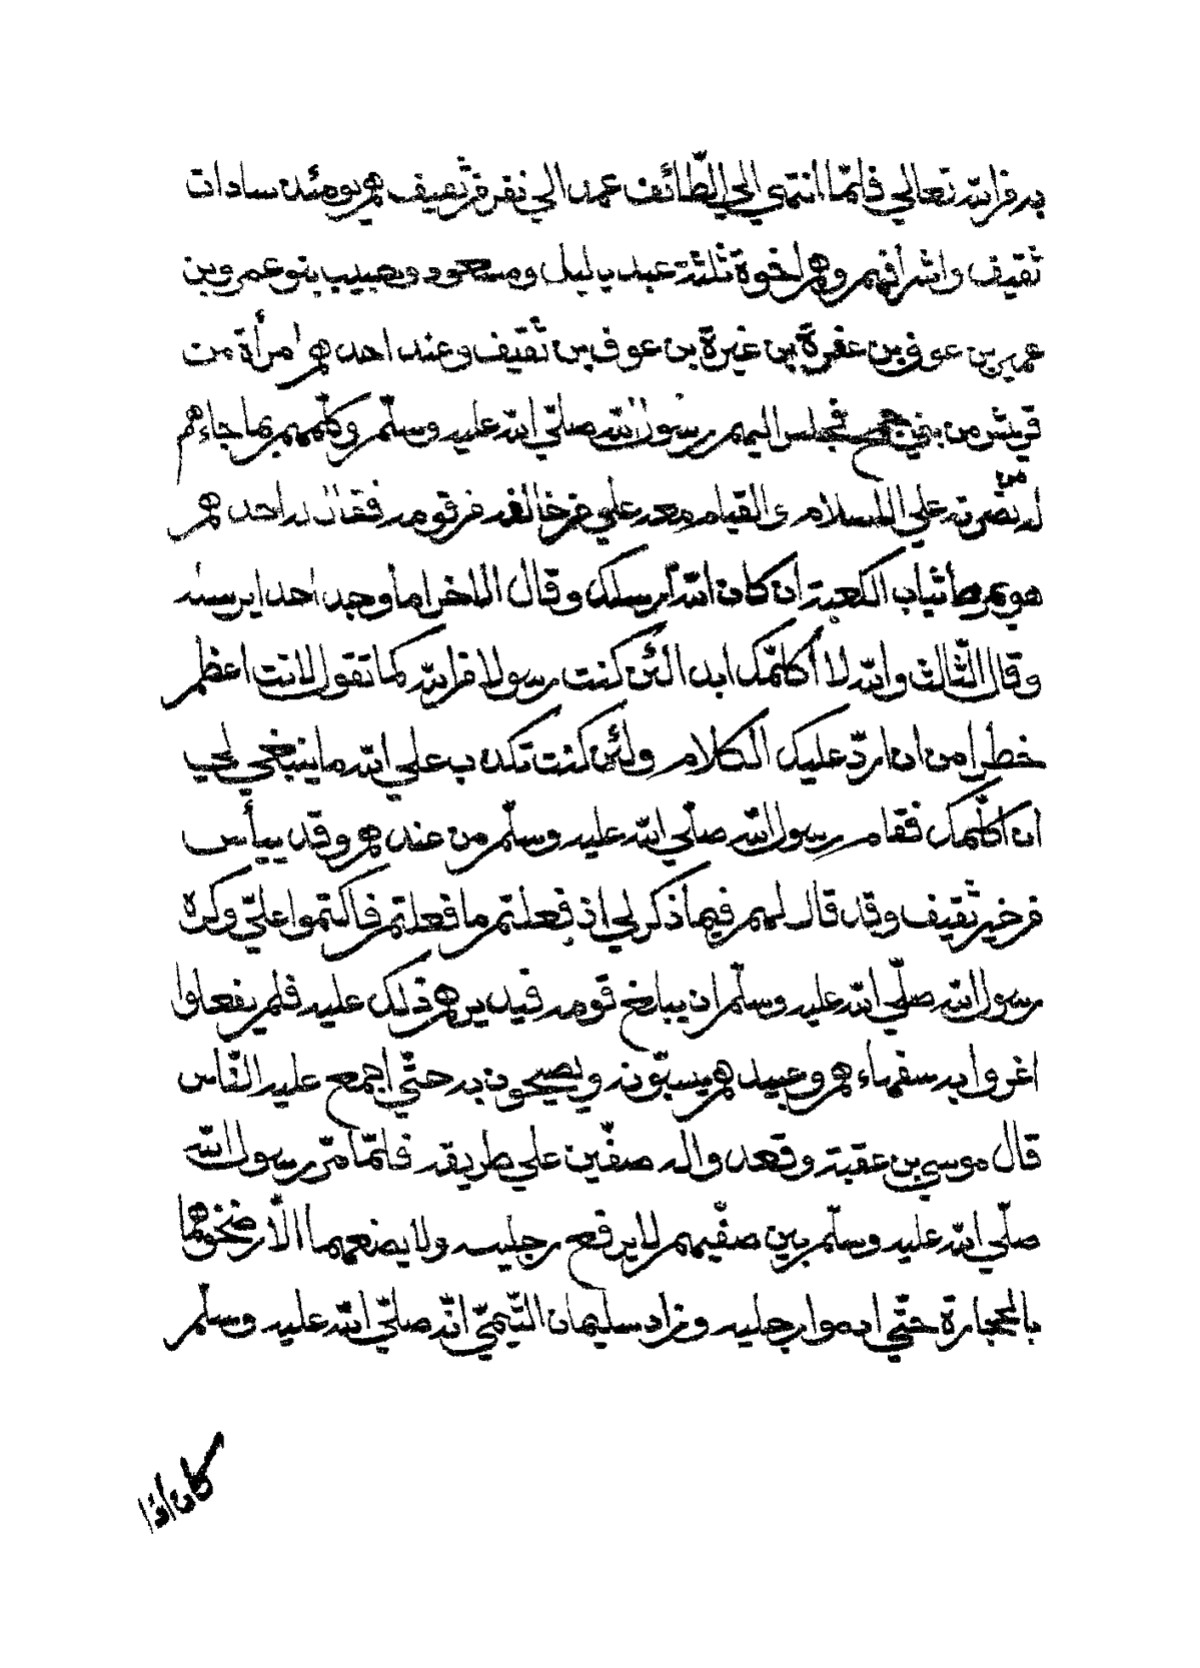 به من الله تعالي فلمّا انتهي الي الطّائف عمد الي نفر من ثقيف هم يومئذ سادات
ثقيف واشرافهم وهم اخوة ثلثة عبد ياليل ومسعود وحبيب بنو عمرو بن
عمير بن عوف بن عقرة بن غيرة بن عوف بن ثقيف وعند احدهم امرأة من
قريش من بني جمح فجلس اليهم رسول الله صلّي الله عليه وسلّم وكلّمهم بما جاءهم
له من نصرته علي الاسلام والقيام معه علي من خالفه من قومه فقال له احدهم
هو يمرط ثياب الكعبة ان كان الله ارسلك وقال الاخر اما وجد احدا يرسله
وقال الثّالث والله لا أكلّمك ابدا لئن كنت رسولا من الله كما تقول لانت اعظم
خطرا من ان اردّ عليك الكلام ولئن كنت تكذب علي الله ما ينبغي لي
ان اكلّمك فقام رسول الله صلّي الله عليه وسلّم من عندهم وقد ييأس
من خير ثقيف وقد قال لهم فيما ذكر لي اذ فعلتم ما فعلتم فاكتموا عليّ وكره
رسول الله صلّي الله عليه وسلّم ان يبلغ قومه فيديرهم ذلك عليه فلم يفعلوا
اغروا به سفهاءهم وعبيدهم يسبّونه ويصيحون به حتّي اجمع عليه النّاس
قال موسي بن عقبة وقعدوا له صفّين علي طريقه فلمّا مرّ رسول الله
صلّي الله عليه وسلّم بين صفّيهم لا يرفع رجليه ولا يضعهما الّا رضخوهما
بالحجارة حتّي ادموا رجليه وزاد سليمان التّيميّ انّه صلّي الله عليه وسلّم
كان اذا